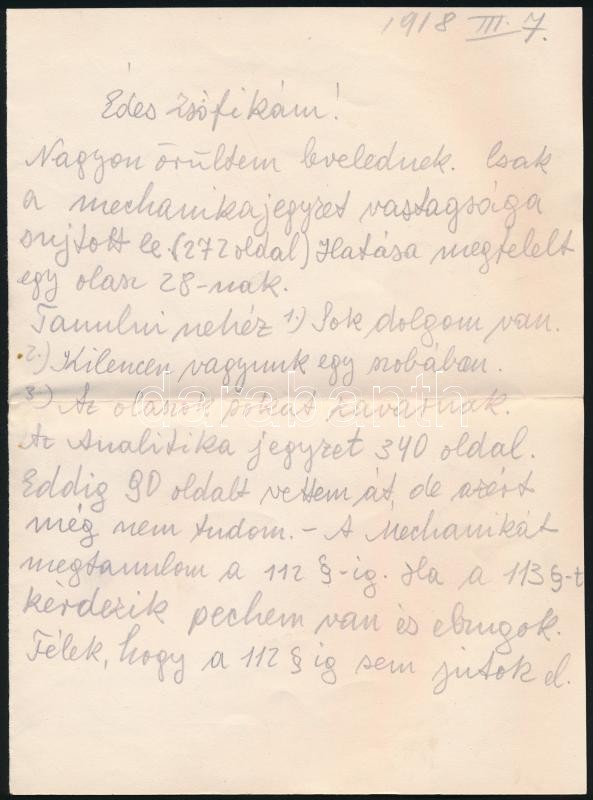 1918 III. 7.
Édes Zsófikám!
Nagyon örültem levelednek. Csak
a mechanikajegyzet vastagsága
sujtott le. (272 oldal) Hatása megfelelt
egy olasz 28-nak.
Tanulni nehéz 1.) Sok dolgom van.
2.) Kilencen vagyunk egy szobában.
3.) Az olaszok sokat zavarnak.
Az Analitika jegyzet 340 oldal.
Eddig 90 oldalt vettem át de azért
még nem tudom. - A Mechanikát
megtanulom a 112 §-ig. Ha a 113 §-t
kérdezik pechem van és elzugok.
Félek, hogy a 112 § ig sem jutok el.
darabanth